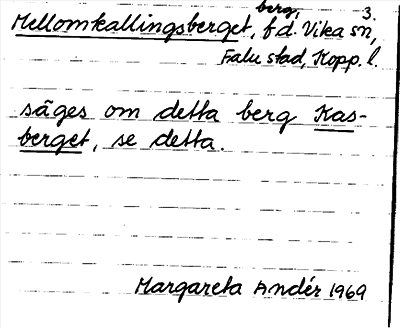 berg, 3.
Mellomkallingsberget, f.d. Vika sn,
Falu stad, Kopp. l.
säges om detta berg Kas-
berget, se detta.
Margareta Andér 1969